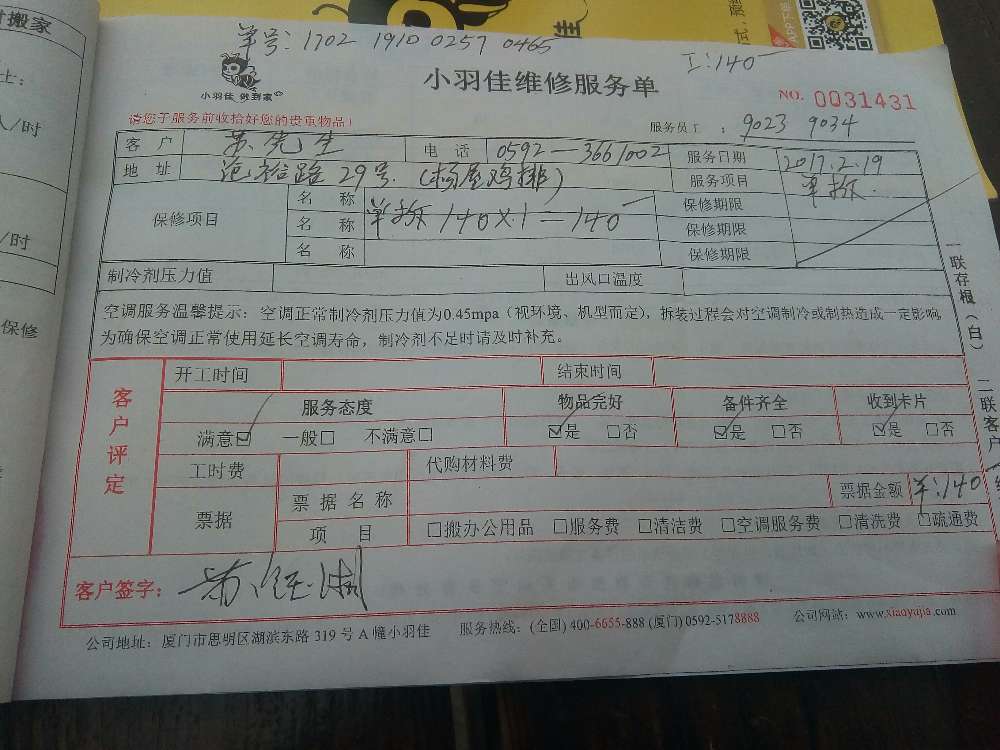 单号: 1702 1910 0257 0465
工:140
小羽佳 做到家
小羽佳维修服务单
NO. 0031431
请您于服务前收拾好您的贵重物品!
服务员工 : 9023 9034
客 户 苏先生 电 话 0592—3661002 服务日期 2017.2.19
地 址 29号 服务项目 单拆
保修项目 名 称 保修期限
名 称 单拆 140×1=140 保修期限
名 称 保修期限
制冷剂压力值 出风口温度
空调服务温馨提示: 空调正常制冷剂压力值为0.45mpa(视环境、机型而定), 拆装过程会对空调制冷或制热造成一定影响,
为确保空调正常使用延长空调寿命, 制冷剂不足时请及时补充。
一联存根(白) 二联客户
客户评定
开工时间 结束时间
服务态度 物品完好 备件齐全 收到卡片
满意☑ 一般□ 不满意□ ☑是 □否 ☑是 □否 ☑是 □否
工时费 代购材料费
票据 票据名称 票据金额 单:140
项 目 □搬办公用品 □服务费 □清洁费 □空调服务费 □清洗费 □疏通费
客户签字:
公司地址: 厦门市思明区湖滨东路 319 号 A 幢小羽佳 服务热线: (全国) 400-6655-888 (厦门) 0592-5178888 公司网站: www.xiaoyujia.com
搬家
士:
人/时
/时
保修